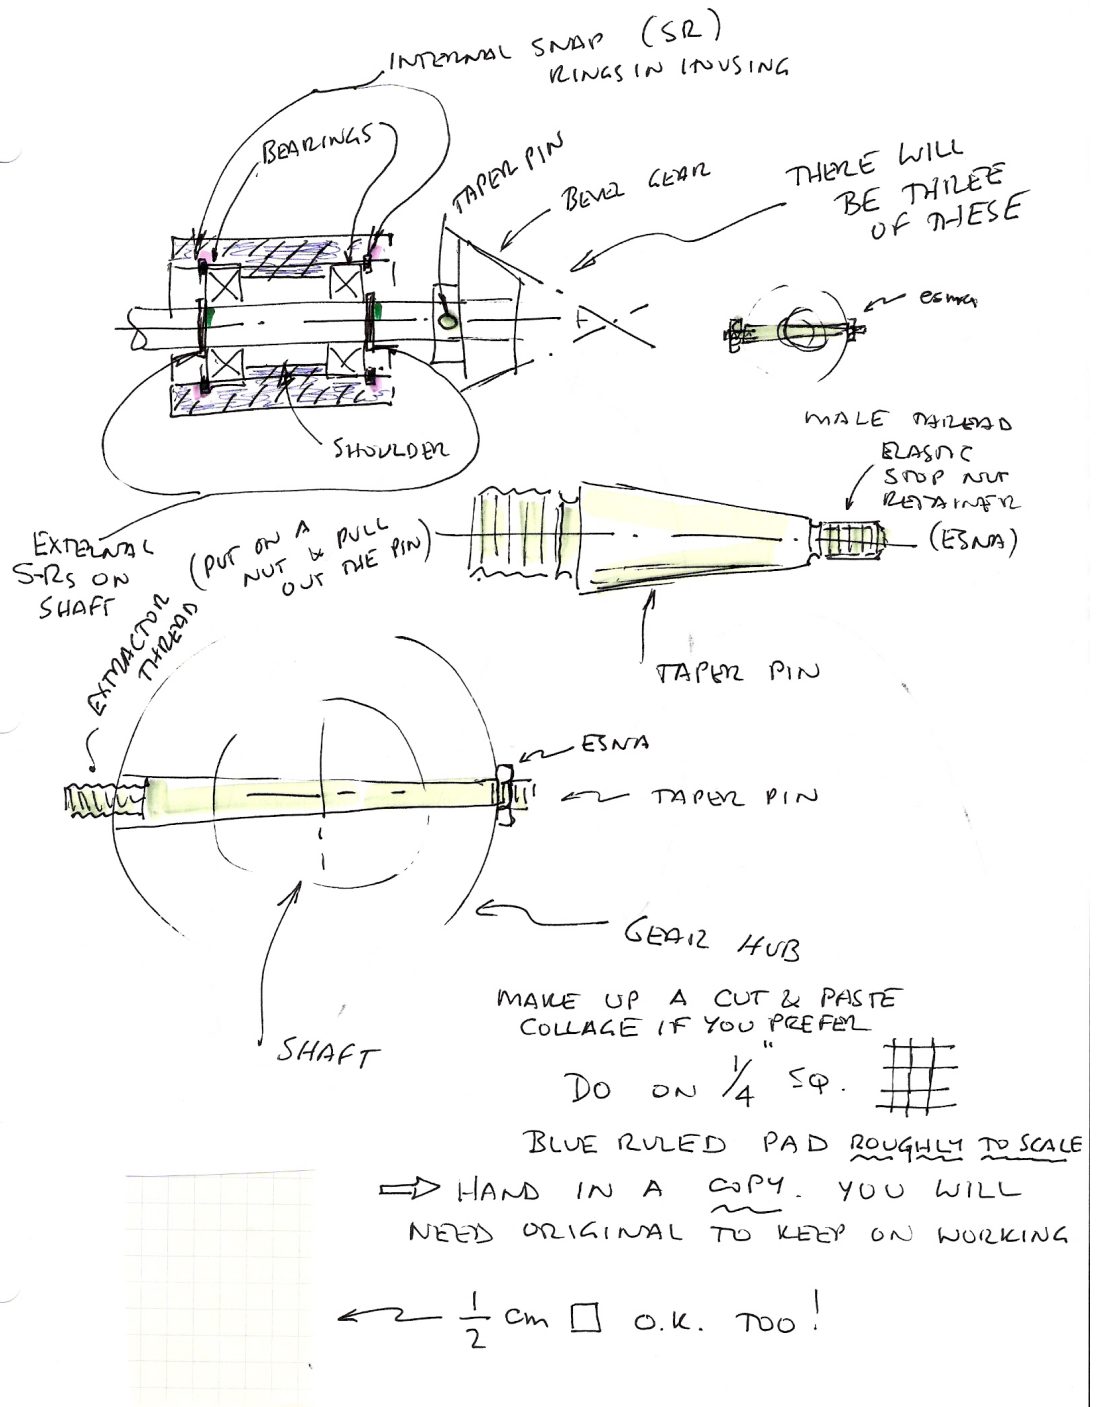 INTERNAL SNAP (SR)
RINGS IN INUSING
BEARINGS
TAPER PIN
BEVEL GEAR
THERE WILL
BE THREE
OF THESE
ESNA
SHOULDER
MALE THREAD
ELASTIC
STOP NUT
RETAINER
(ESNA)
EXTERNAL
S-RS ON
SHAFT
(PUT ON A
NUT & PULL
OUT THE PIN)
EXTRACTOR
THREAD
TAPER PIN
ESNA
TAPER PIN
GEAR HUB
SHAFT
MAKE UP A CUT & PASTE
COLLAGE IF YOU PREFER
DO ON 1/4" SQ.
BLUE RULED PAD ROUGHLY TO SCALE
⇒ HAND IN A COPY. YOU WILL
NEED ORIGINAL TO KEEP ON WORKING
← 1/2 cm □ O.K. TOO!